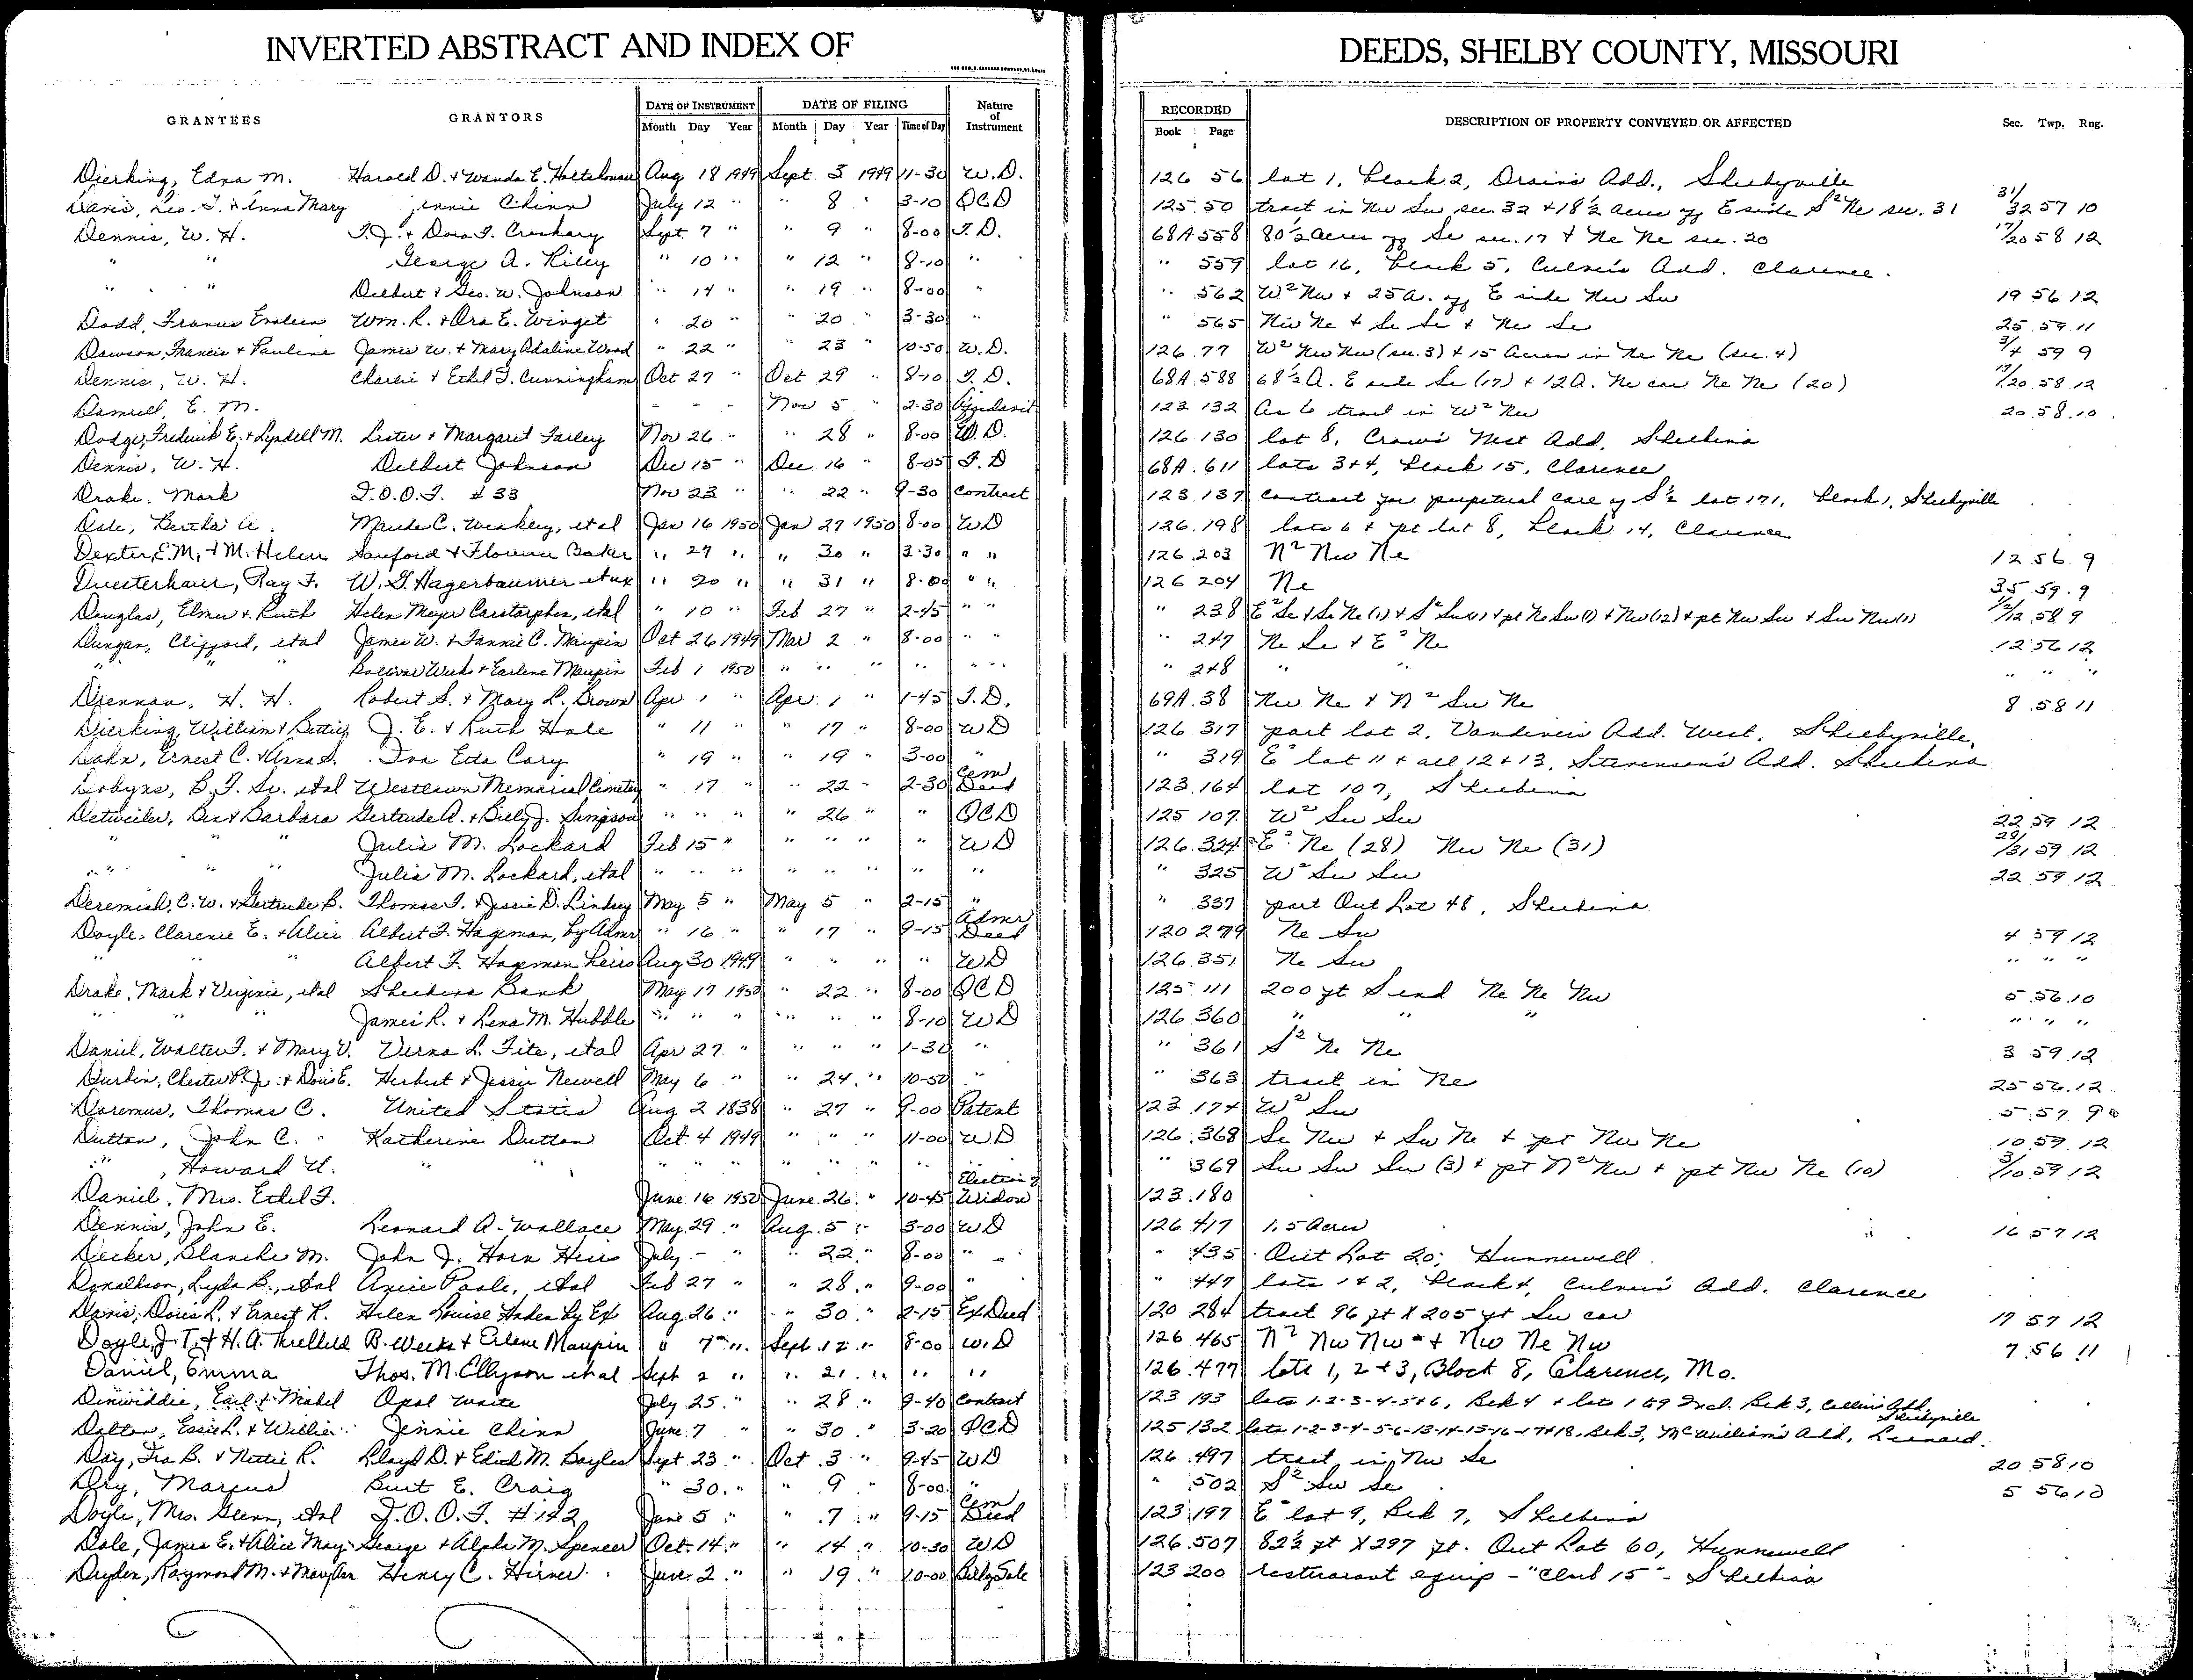 INVERTED ABSTRACT AND INDEX OF
DEEDS, SHELBY COUNTY, MISSOURI
GRANTEES GRANTORS DATE OF INSTRUMENT DATE OF FILING Nature of Instrument RECORDED DESCRIPTION OF PROPERTY CONVEYED OR AFFECTED Sec. Twp. Rng.
Month Day Year Month Day Year Time of Day Book Page
Dierking, Edna M. Harold D. + Wanda E. Aug 18 1949 Sept 3 1949 11-30 W.D. 126 56 lot 1, block 2, Drains Add., Shelbyville
Davis, Leo. T. + Anna Mary Jennie Chinn July 12 " " 8 " 3-10 QCD 125.50 tract in Nw Sw sec. 32 + 18½ acres off E side S² Ne sec. 31 31/32 57 10
Dennis, W. H. T.J. + Dora F. Croskary Sept 7 " " 9 " 8-00 T.D. 68A 558 80½ acres off Se sec. 17 + Ne Ne sec. 20 17/20 58 12
" " George A. Riley " 10 " " 12 " 8-10 " " 559 lot 16, block 5, Culver's Add. Clarence.
" " Delbert + Geo. W. Johnson " 14 " " 19 " 8-00 " " 562 W² Nw + 25 a. off E side Nw Sw 19 56 12
Dodd, Francis Wm. R. + Ora E. Winget " 20 " " 20 " 3-30 " " 565 Nw Ne + Se Se + Ne Se 25 59 11
Dawson, Francis + Pauline James W. + Mary Adaline Wood " 22 " " 23 " 10-50 W.D. 126.77 W² Nw Nw (sec. 3) + 15 acres in Ne Ne (sec. 4) 3/4 59 9
Dennis, W. H. Charlie + Ethel F. Cunningham Oct 27 " Oct 29 " 8-10 T.D. 68A.588 68½ A. E side Se (17) + 12 A. Ne cor Ne Ne (20) 17/20 58 12
Damrell, E. M. - - - Nov 5 " 2-30 Affidavit 123 132 as to tract in W² Nw 20.58.10
Dodge, Frederick E. + Lyndell M. Lester + Margaret Farley Nov 26 " " 28 " 8-00 W.D. 126.130 lot 8, Crow's Nest Add, Shelbina
Dennis, W. H. Delbert Johnson Dec 15 " Dec 16 " 8-05 T.D 68A.611 lots 3+4, block 15, Clarence
Drake, Mark I.O.O.F. #33 Nov 23 " " 22 " 9-30 Contract 123.137 contract for perpetual care of S½ lot 171, block 1, Shelbyville
Dale, Bertha A. Maude C. Weakley, et al Jan 16 1950 Jan 27 1950 8-00 WD 126.198 lots 6 + pt lot 8, block 14, Clarence
Dexter, E.M. + M. Helen Sanford + Florence Baker " 27 " " 30 " 3-30 " " 126.203 N² Nw Ne 12 56 9
Duesterhaus, Ray F. W. G. Hagerbaumer et ux " 20 " " 31 " 8-00 " " 126 204 Ne 35 59.9
Douglas, Elmer + Ruth Helen Meyer Carstarphen, etal " 10 " Feb 27 " 2-45 " " " 238 E² Se + Se Ne (1) + S² Sw(1) + pt Ne Sw (1) + Nw (12) + pt Nw Sw + Sw Nw(1) 1/12 58 9
Dungan, Clifford, etal James W. + Fannie C. Maupin Oct 26 1949 Mar 2 " 8-00 " " " 247 Ne Se + E² Ne 12 56 12
" " " Weeks + Earlene Maupin Feb 1 1950 " " " " " " " 248 " " " " "
Drennan, H. H. Robert S. + Mary L. Brown Apr 1 " Apr 1 " 1-45 T.D. 69A.38 Nw Ne + N² Sw Ne 8 58 11
Dierking, William + Bettie J. E. + Ruth Hale " 11 " " 17 " 8-00 WD 126 317 part lot 2, Vandiver's Add. West, Shelbyville
Dahn, Ernest C. + Anna S. Iva Etta Cary " 19 " " 19 " 3-00 " " 319 E² lot 11 + all 12 + 13, Stevenson's Add. Shelbina
Dobyns, B. F. Sr. etal Westlawn Memorial Cemetery " 17 " " 22 " 2-30 Cem Deed 123.164 lot 107, Shelbina
Detweiler, Ben + Barbara Gertrude A. + Billy J. Simpson " " " " 26 " " QCD 125 107 W² Sw Sw 22 59 12
" " " Julia M. Lockard Feb 15 " " " " " WD 126.324 E² Ne (28) Nw Ne (31) 28/31 59 12
" " " Julia M. Lockard, etal " " " " " " " " " 325 W² Sw Sw 22 59 12
Deremiah, C. W. + Gertrude B. Thomas F. + Jessie D. Lindsey May 5 " May 5 " 2-15 " " 337 part Out Lot 48, Shelbina
Doyle, Clarence E. + Alice Albert F. Hageman, by Admr " 16 " " 17 " 9-15 Admr Deed 120 279 Ne Sw 4 59 12
" " " Albert F. Hageman heirs Aug 30 1949 " " " " WD 126.351 Ne Sw " " "
Drake, Mark + Virginia, etal Shelbina Bank May 17 1950 " 22 " 8-00 QCD 125.111 200 ft S end Ne Ne Nw 5 56 10
" " " James R. + Lena M. Hubble " " " " " " 8-10 WD 126 360 " " " " " "
Daniel, Walter F. + Mary V. Verna L. Fite, etal Apr 27 " " " " 1-30 " " 361 S² Ne Ne 3 59 12
Durbin, Chester P. Jr. + Doris E. Herbert + Jessie Newell May 6 " " 24 " 10-50 " " 363 tract in Ne 25 56 12
Doremus, Thomas C. United States Aug 2 1838 " 27 " 9-00 Patent 123 174 W² Sw 5 57 9
Dutton, John C. Katherine Dutton Oct 4 1949 " " " 11-00 WD 126.368 Se Nw + Sw Ne + pt Nw Ne 10 59 12
" , Howard U. " " " " " " " " " " " 369 Sw Sw Sw (3) + pt N² Nw + pt Nw Ne (10) 3/10 59 12
Daniel, Mrs. Ethel F. June 16 1950 June 26 " 10-45 Election of Widow 123.180
Dennis, John E. Leonard A. Wallace May 29 " Aug. 5 " 3-00 WD 126 417 1.5 Acres 16 57 12
Decker, Blanche M. John J. Horn Heirs July - " " 22 " 8-00 " " 435 Out Lot 20, Hunnewell
Donaldson, Lyda B., etal Poole, etal Feb 27 " " 28 " 9-00 " " 447 lots 1 + 2, block 4, Culver's Add. Clarence
Davis, Doris L. + Ernest R. Helen Louise Haden by Ex Aug 26 " " 30 " 2-15 Ex Deed 120 284 tract 96 ft X 205 ft Sw cor 17 57 12
Doyle, J. T. + H. A. Threlkeld B. Weeks + Erlene Maupin " 7 " Sept 12 " 8-00 W.D 126 465 N² Nw Nw + Nw Ne Nw 7 56 11
Daniel, Emma Thos. M. Ellyson et al Sept 2 " " 21 " " " 126.477 lots 1, 2 + 3, Block 8, Clarence, Mo.
Dinwiddie, Earl + Mabel Opal Waite July 25 " " 28 " 9-40 Contract 123 193 lots 1-2-3-4-5+6, Blk 4 + lots 1 to 9 Incl. Blk 3, Add, Shelbyville
Dalton, Essie L. + Willie Jennie Chinn June 7 " " 30 " 3-20 QCD 125 132 lots 1-2-3-4-5-6-13-14-15-16-17+18, Blk 3, McWilliam's Add, Leonard.
Day, Ira B. + Nettie R. Lloyd D. + Edith M. Bayles Sept 23 " Oct 3 " 9-45 WD 126.497 tract in Nw Se 20 58 10
Dry, Marcus Burt E. Craig " 30 " " 9 " 8-00 " " 502 S² Sw Se 5 56 10
Doyle, Mrs. Glenn, etal I.O.O.F. #142 June 5 " " 7 " 9-15 Cem Deed 123.197 E² lot 9, Blk 7, Shelbina
Dale, James E. + Alice May George + Alpha M. Spencer Oct. 14 " " 14 " 10-30 WD 126.507 82½ ft X 297 ft. Out Lot 60, Hunnewell
Dryden, Raymond M. + Mary Ann Henry C. Hirner June 2 " " 19 " 10-00 Bill of Sale 123 200 restuarant equip - "Club 15" - Shelbina